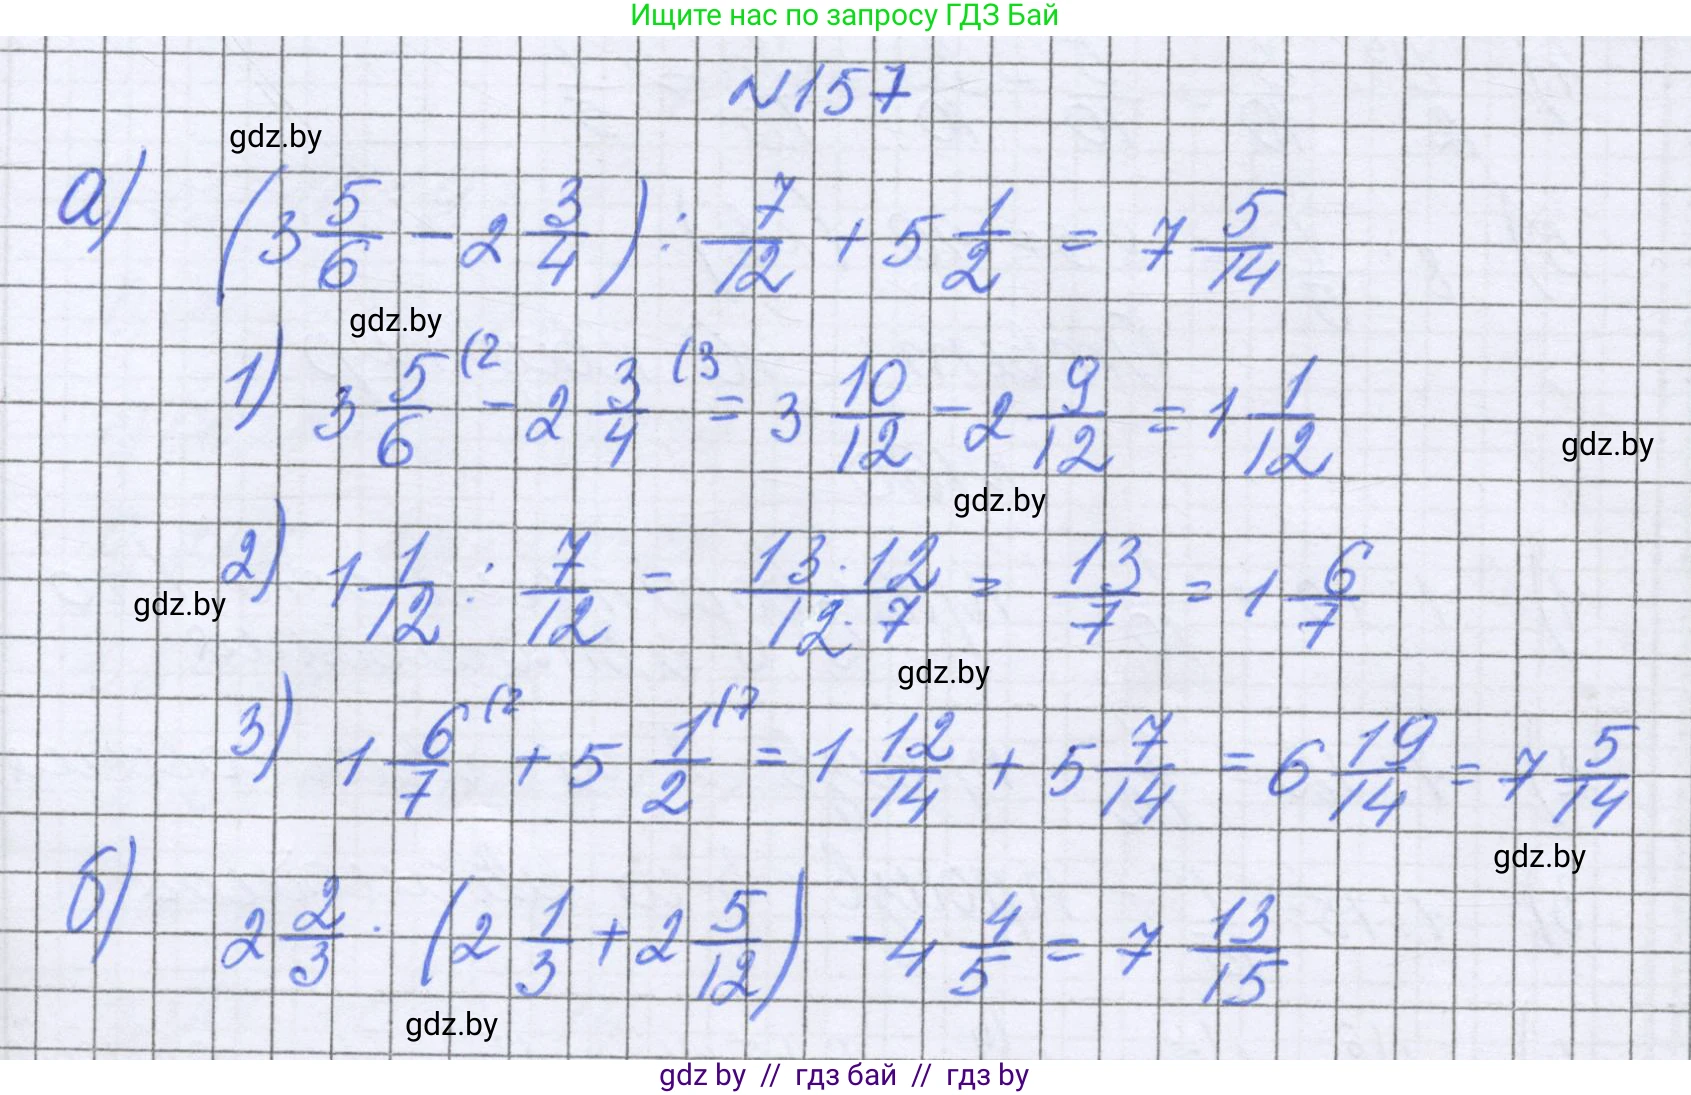 Ищите нас по запросу ГДЗ Бай
№157
gdz.by
а) (3 5/6 - 2 3/4) : 7/12 + 5 1/2 = 7 5/14
gdz.by
1) 3 5/6 (2 - 2 3/4 (3 = 3 10/12 - 2 9/12 = 1 1/12
gdz.by
gdz.by
2) 1 1/12 : 7/12 = 13·12/12·7 = 13/7 = 1 6/7
gdz.by
gdz.by
3) 1 6/7 (2 + 5 1/2 (7 = 1 12/14 + 5 7/14 = 6 19/14 = 7 5/14
gdz.by
б) 2 2/3 · (2 1/3 + 2 5/12) - 4 4/5 = 7 13/15
gdz.by
gdz by // гдз бай // гдз by